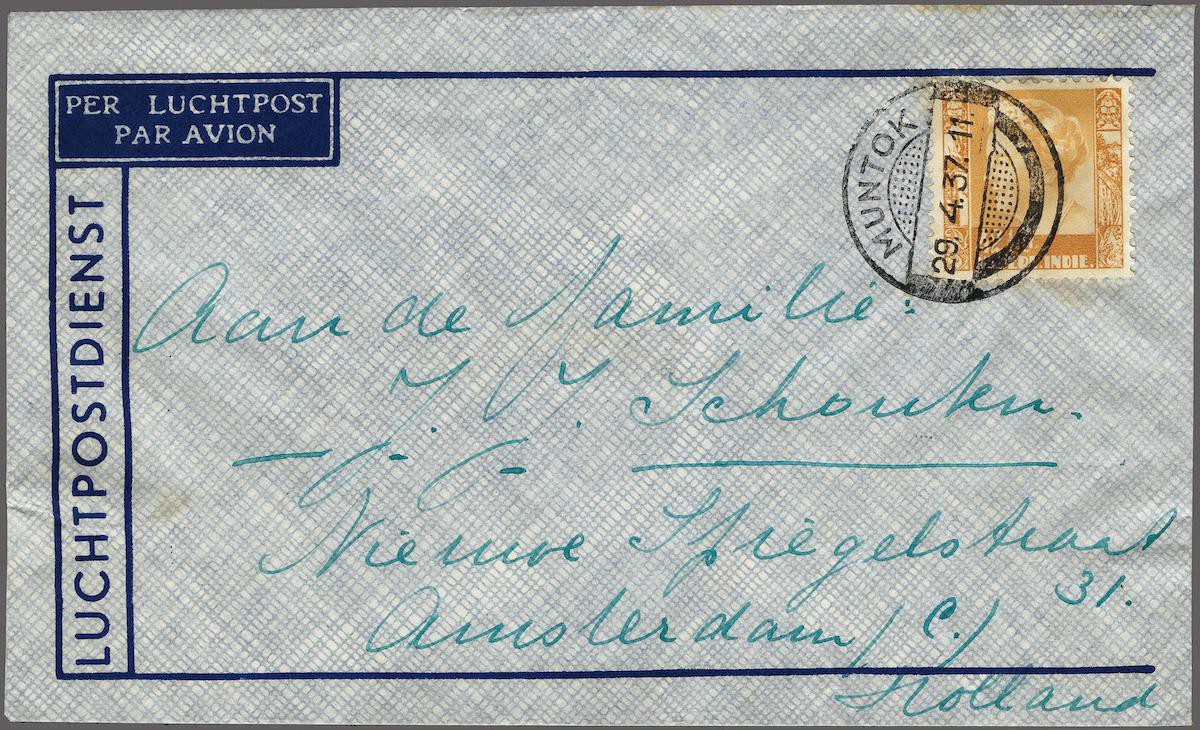 PER LUCHTPOST
PAR AVION
LUCHTPOSTDIENST
MUNTOK
29. 4. 37. 11.
INDIE.
Aan de Familie:
J. J. Schouten.
Nieuwe Spiegelstraat
31.
Amsterdam (C.)
Holland